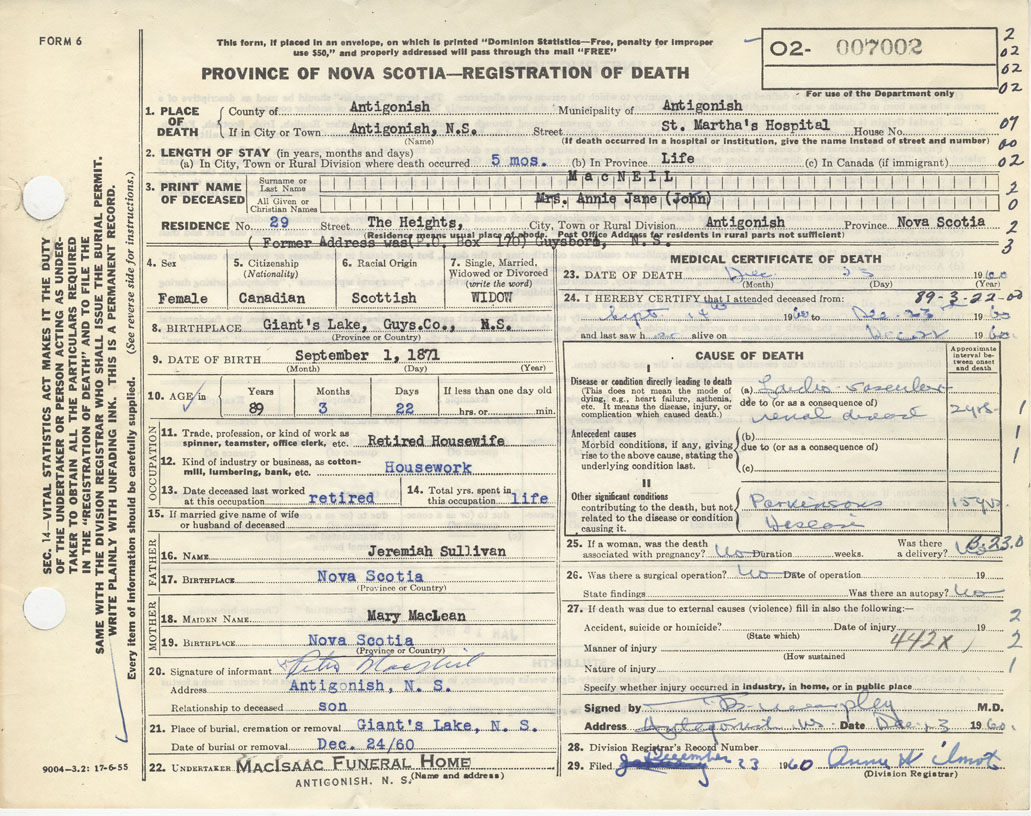 FORM 6
This form, if placed in an envelope, on which is printed "Dominion Statistics—Free, penalty for improper
use $50," and properly addressed will pass through the mail "FREE"
O2- 007002
For use of the Department only
PROVINCE OF NOVA SCOTIA—REGISTRATION OF DEATH
2
02
02
02
07
00
02
2
0
2
2
3
SEC. 14—VITAL STATISTICS ACT MAKES IT THE DUTY
OF THE UNDERTAKER OR PERSON ACTING AS UNDER-
TAKER TO OBTAIN ALL THE PARTICULARS REQUIRED
IN THE "REGISTRATION OF DEATH" AND TO FILE THE
SAME WITH THE DIVISION REGISTRAR WHO SHALL ISSUE THE BURIAL PERMIT.
WRITE PLAINLY WITH UNFADING INK. THIS IS A PERMANENT RECORD.
Every item of information should be carefully supplied. (See reverse side for instructions.)
1. PLACE OF DEATH
County of Antigonish Municipality of Antigonish
If in City or Town Antigonish, N.S. Street St. Martha's Hospital House No.
(Name) (If death occurred in a hospital or institution, give the name instead of street and number)
2. LENGTH OF STAY (in years, months and days)
(a) In City, Town or Rural Division where death occurred 5 mos. (b) In Province Life (c) In Canada (if immigrant)
3. PRINT NAME OF DECEASED
Surname or Last Name MacNEIL
All Given or Christian Names Mrs. Annie Jane (John)
RESIDENCE No. 29 Street The Heights, City, Town or Rural Division Antigonish Province Nova Scotia
(Residence means usual place of abode. Post Office Address for residents in rural parts not sufficient)
( Former Address was(P.O. Box 170) Guysboro, N.S.
4. Sex
Female
5. Citizenship
(Nationality)
Canadian
6. Racial Origin
Scottish
7. Single, Married, Widowed or Divorced
(write the word)
WIDOW
8. BIRTHPLACE Giant's Lake, Guys.Co., N.S.
(Province or Country)
9. DATE OF BIRTH September 1, 1871
(Month) (Day) (Year)
10. AGE in
Years 89
Months 3
Days 22
If less than one day old
hrs. or min.
OCCUPATION
11. Trade, profession, or kind of work as
spinner, teamster, office clerk, etc. Retired Housewife
12. Kind of industry or business, as cotton-
mill, lumbering, bank, etc. Housework
13. Date deceased last worked
at this occupation retired
14. Total yrs. spent in
this occupation life
15. If married give name of wife
or husband of deceased
FATHER
16. NAME Jeremiah Sullivan
17. BIRTHPLACE Nova Scotia
(Province or Country)
MOTHER
18. MAIDEN NAME Mary MacLean
19. BIRTHPLACE Nova Scotia
(Province or Country)
20. Signature of informant Peter MacNeil
Address Antigonish, N. S.
Relationship to deceased son
21. Place of burial, cremation or removal Giant's Lake, N. S.
Date of burial or removal Dec. 24/60
22. UNDERTAKER MACISAAC FUNERAL HOME
ANTIGONISH, N. S. (Name and address)
9004-3.2: 17-6-55
MEDICAL CERTIFICATE OF DEATH
23. DATE OF DEATH Dec 23 1960
(Month) (Day) (Year)
89-3-22-00
24. I HEREBY CERTIFY that I attended deceased from:
Sept 14th 1960 to Dec. 23 1960
and last saw her alive on Dec 22 1960
CAUSE OF DEATH
Approximate interval between onset and death
I
Disease or condition directly leading to death
(This does not mean the mode of
dying, e.g., heart failure, asthenia,
etc. It means the disease, injury, or
complication which caused death.)
(a) Cardio-vascular
due to (or as a consequence of)
renal disease 2 yrs.
Antecedent causes
Morbid conditions, if any, giving
rise to the above cause, stating the
underlying condition last.
(b)
due to (or as a consequence of)
(c)
II
Other significant conditions
contributing to the death, but not
related to the disease or condition
causing it.
Parkinsons 15 yrs.
Disease
1
1
1
25. If a woman, was the death
associated with pregnancy? No Duration weeks. Was there a delivery? No
B.23.0
26. Was there a surgical operation? No Date of operation 19
State findings Was there an autopsy? No
27. If death was due to external causes (violence) fill in also the following:—
Accident, suicide or homicide? Date of injury 19
(State which)
Manner of injury 442X
(How sustained)
Nature of injury
2
2
1
Specify whether injury occurred in industry, in home, or in public place
Signed by M.D.
Address Antigonish NS Date Dec. 23 1960.
28. Division Registrar's Record Number
29. Filed December 23 1960 Annie W Wilmot
(Division Registrar)